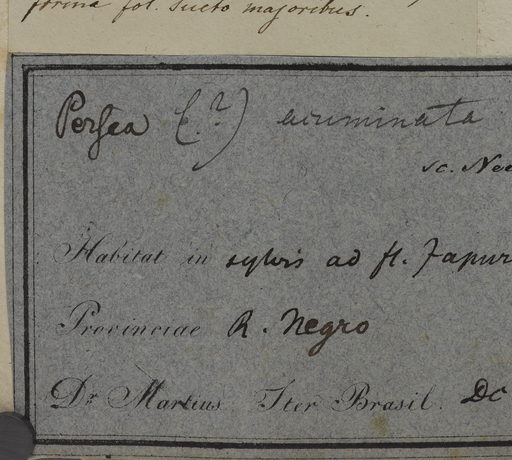 forma fol. sueto majoribus.
Persea (?) acuminata
sc. Nee
Habitat in sylvis ad fl. Japur
Provinciae R. Negro
Dr Martius Iter Brasil. DC